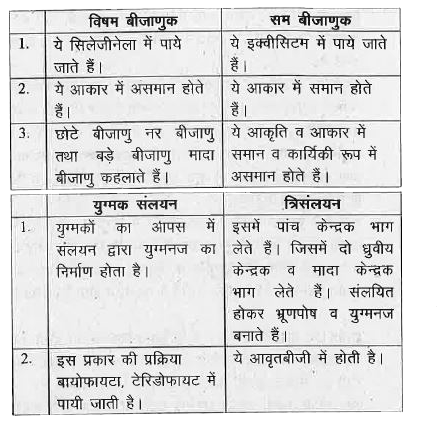 विषम बीजाणुक सम बीजाणुक
1. ये सिलेजीनेला में पाये जाते हैं।
ये इक्वीसिटम में पाये जाते हैं।
2. ये आकार में असमान होते हैं।
ये आकार में समान होते हैं।
3. छोटे बीजाणु नर बीजाणु
तथा बड़े बीजाणु मादा
बीजाणु कहलाते हैं।
ये आकृति व आकार में
समान व कार्यिकी रूप में
असमान होते हैं।
युग्मक संलयन त्रिसंलयन
1. युग्मकों का आपस में
संलयन द्वारा युग्मनज का
निर्माण होता है।
इसमें पांच केन्द्रक भाग
लेते हैं। जिसमें दो ध्रुवीय
केन्द्रक व मादा केन्द्रक
भाग लेते हैं। संलयित
होकर भ्रूणपोष व युग्मनज
बनाते हैं।
2. इस प्रकार की प्रक्रिया
बायोफायटा, टेरिडोफायट में
पायी जाती है।
ये आवृतबीजी में होती है।